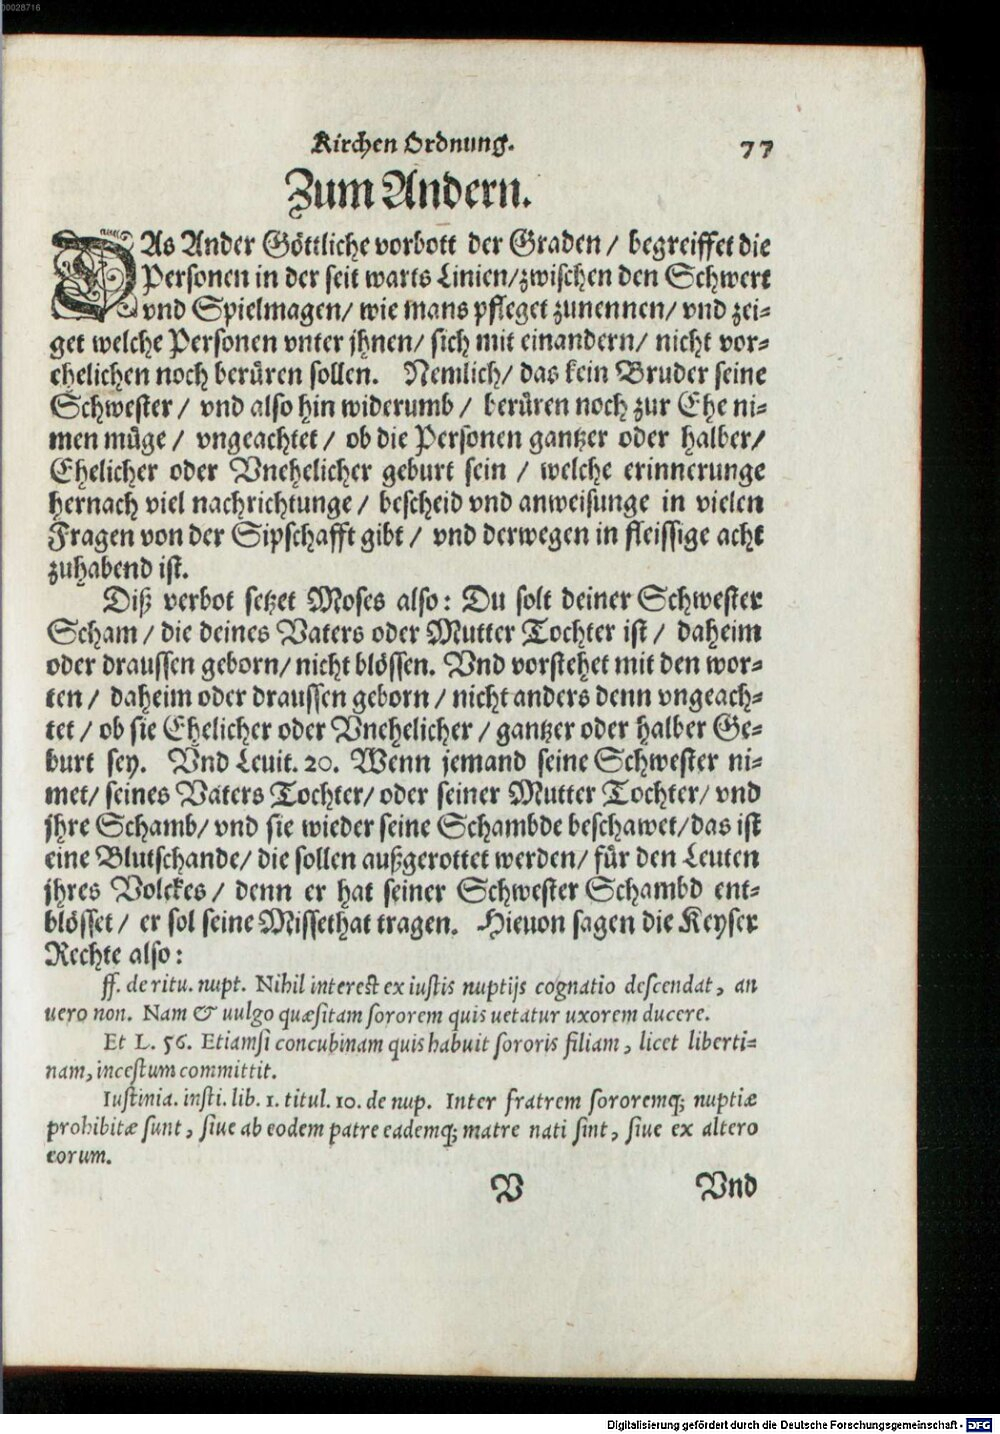 00028716
Kirchen Ordnung. 77
Zum Andern.
DAs Ander Göttliche vorbott der Graden / begreiffet die
Personen in der seit warts Linien/zwischen den Schwert
vnd Spielmagen/ wie mans pfleget zunennen/ vnd zei=
get welche Personen vnter jhnen/ sich mit einandern/ nicht vor=
ehelichen noch berüren sollen. Nemlich/ das kein Bruder seine
Schwester / vnd also hin widerumb / berüren noch zur Ehe ni=
men müge / vngeachtet / ob die Personen gantzer oder halber/
Ehelicher oder Vnehelicher geburt sein / welche erinnerunge
hernach viel nachrichtunge / bescheid vnd anweisunge in vielen
Fragen von der Sipschafft gibt / vnd derwegen in fleissige acht
zuhabend ist.
Diß verbot setzet Moses also: Du solt deiner Schwester
Scham / die deines Vaters oder Mutter Tochter ist / daheim
oder draussen geborn/ nicht blössen. Vnd vorstehet mit den wor=
ten / daheim oder draussen geborn / nicht anders denn vngeach=
tet / ob sie Ehelicher oder Vnehelicher / gantzer oder halber Ge=
burt sey. Vnd Leuit. 20. Wenn jemand seine Schwester ni=
met/ seines Vaters Tochter/ oder seiner Mutter Tochter/ vnd
jhre Schamb/ vnd sie wieder seine Schambde beschawet/das ist
eine Blutschande/ die sollen außgerottet werden/ für den Leuten
jhres Volckes / denn er hat seiner Schwester Schambd ent=
blösset / er sol seine Missethat tragen. Hieuon sagen die Keyser
Rechte also:
ff. de ritu. nupt. Nihil interest ex iustis nuptijs cognatio descendat, an
uero non. Nam & uulgo quæsitam sororem quis uetatur uxorem ducere.
Et L. 56. Etiamsi concubinam quis habuit sororis filiam, licet liberti=
nam, incestum committit.
Iustinia. insti. lib. 1. titul. 10. de nup. Inter fratrem sororemq; nuptiæ
prohibitæ sunt, siue ab eodem patre eademq; matre nati sint, siue ex altero
eorum.
V Vnd
Digitalisierung gefördert durch die Deutsche Forschungsgemeinschaft - DFG